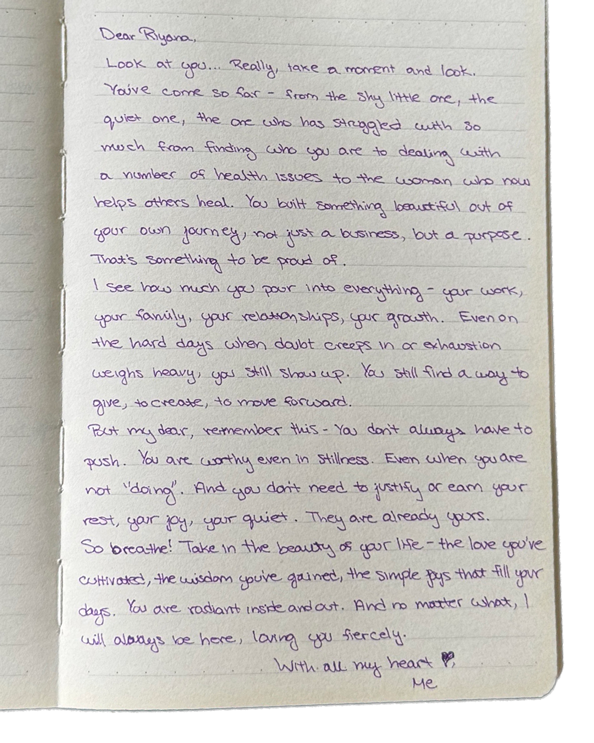 Dear Riyana,
Look at you... Really, take a moment and look.
You've come so far - from the shy little one, the
quiet one, the one who has struggled with so
much from finding who you are to dealing with
a number of health issues to the woman who now
helps others heal. You built something beautiful out of
your own journey, not just a business, but a purpose.
That's something to be proud of.
I see how much you pour into everything - your work,
your family, your relationships, your growth. Even on
the hard days when doubt creeps in or exhaustion
weighs heavy, you still show up. You still find a way to
give, to create, to move forward.
But my dear, remember this - You don't always have to
push. You are worthy even in stillness. Even when you are
not "doing". And you don't need to justify or earn your
rest, your joy, your quiet. They are already yours.
So breathe! Take in the beauty of your life - the love you've
cultivated, the wisdom you've gained, the simple joys that fill your
days. You are radiant inside and out. And no matter what, I
will always be here, loving you fiercely.
With all my heart ♥,
Me